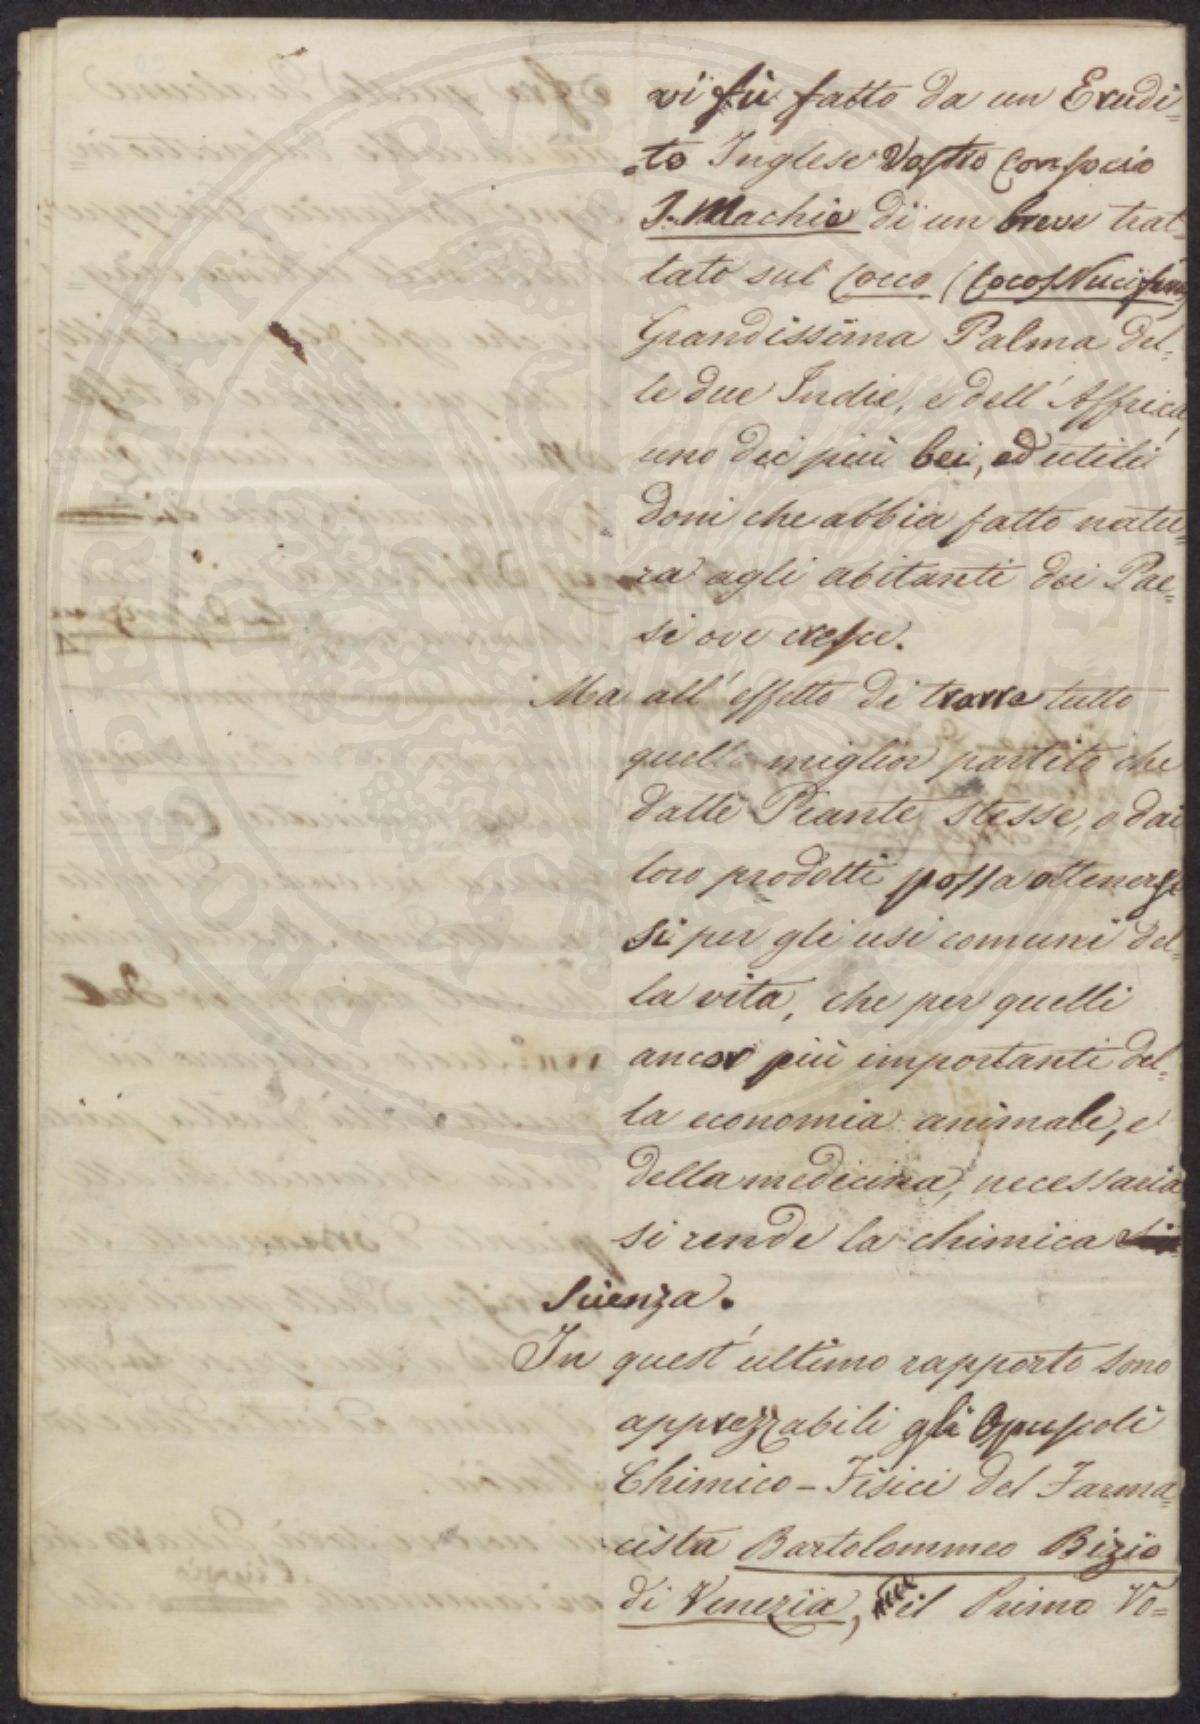 vi fù fatto da un Erudi=
=to Inglese Vostro Consocio
J. Machie di un breve trat=
tato sul Cocco (Cocos Nucifera)
Grandissima Palma del=
le due Indie, e dell' Affrica,
uno dei più bei, ed utili
doni che abbia fatto natu=
ra agli abitanti dei Pae=
si ove cresce.
Ma all' effetto di trarre tutto
quello miglior partito che
dalle Piante stesse, o dai
loro prodotti possa ottener
si per gli usi comuni del=
la vita, che per quelli
ancor più importanti del=
la economia animale, e
della medicina, necessaria
si rende la chimica
Scienza.
In quest' ultimo rapporto sono
apprezzabili gli Opuscoli
Chimico - Fisici del Farma=
cista Bartolommeo Bizio
di Venezia, il Primo Vo=